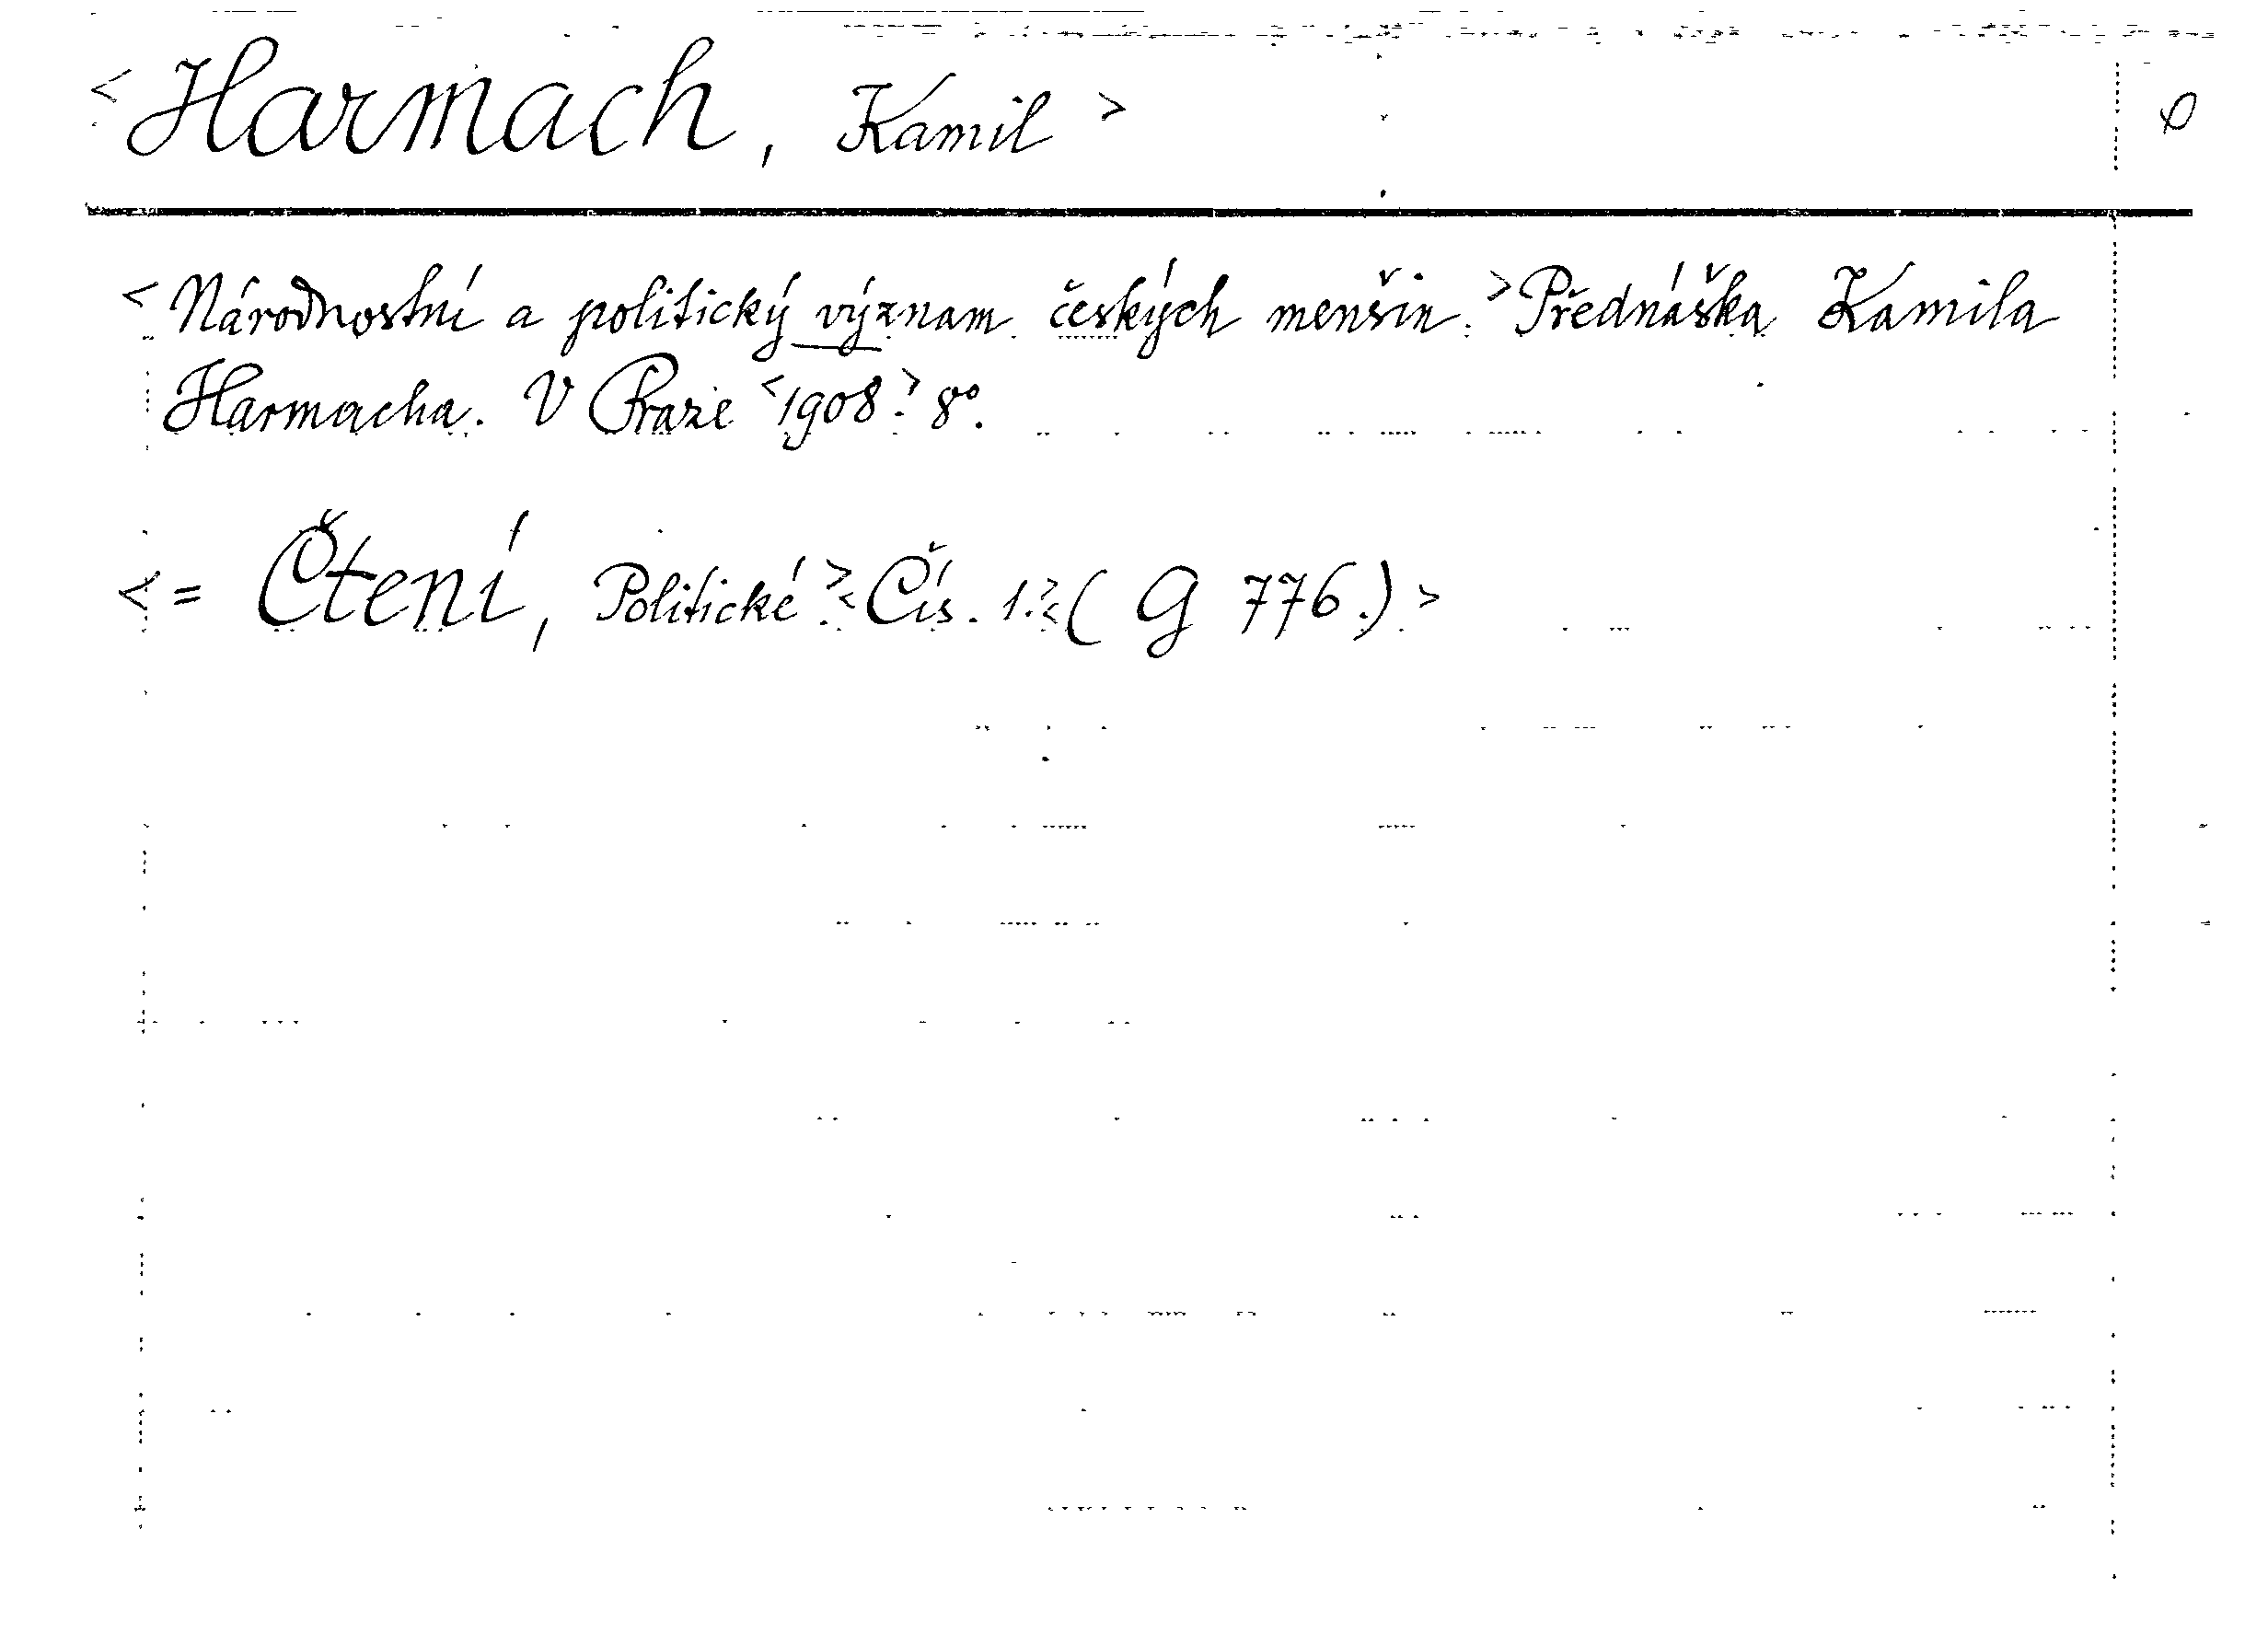 <Harmach, Kamil>
<Národnostní a politický význam českých menšin.> Přednáška Kamila
Harmacha. V Praze <1908.> 8°.
<= Čtení, Politické.> <Čís. 1.> <(G 776.)>